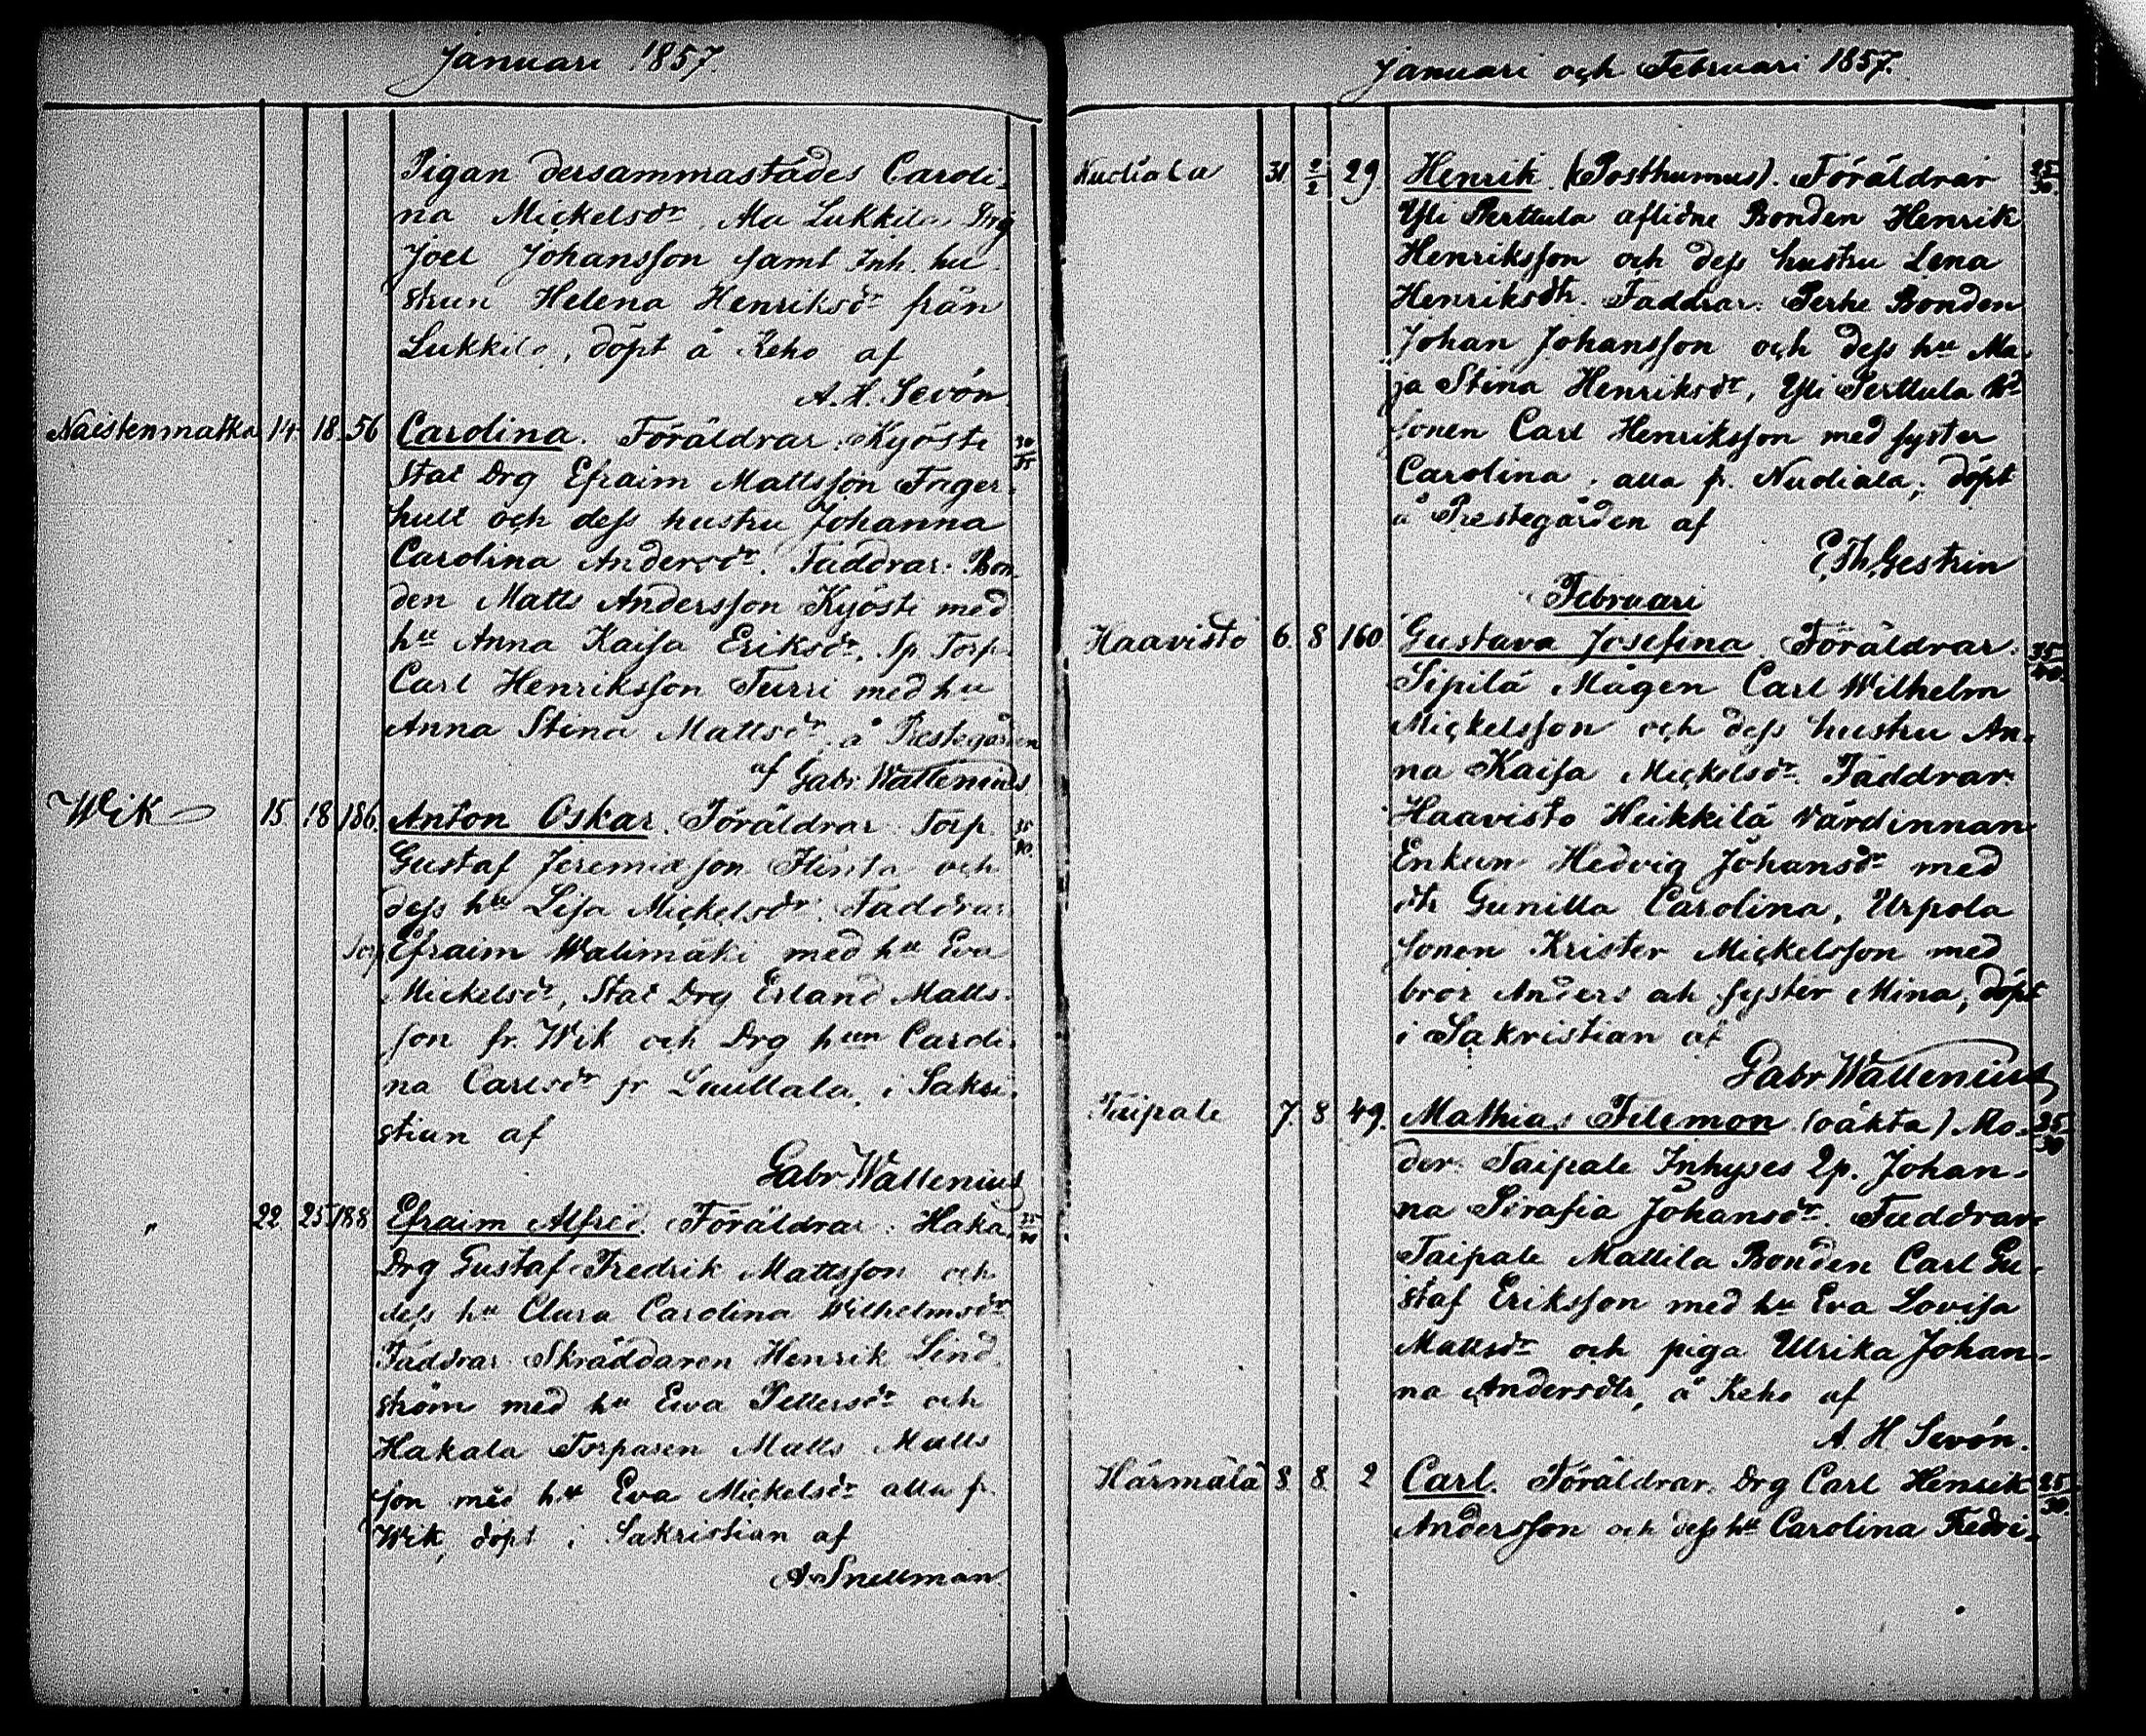 Januari 1857.
Pigan dersammastädes Caroli-
na Mickelsdr, Ala Lukkila Drg
Joel Johansson samt Inh. hu-
strun Helena Henriksdr från
Lukkila, döpt å Keho af
A. H. Sevón.
Naistenmatka 14 18 56 Carolina. Föräldrar: Kyösti 30/35
Stat Drg Efraim Mattsson Fager-
hult och dess hustru Johanna
Carolina Andersdr. Faddrar: Bon-
den Matts Andersson Kyösti med
hu Anna Kaisa Eriksdr, Sp. Torp.
Carl Henriksson Turri med hu
Anna Stina Mattsdr, å Prestegården
af Gabr. Wallenius
Wik 15 18 186. Anton Oskar. Föräldrar Torp.
Gustaf Jeremiasson Hinta och
dess hu Lisa Mickelsdr. Faddrar
Torp Efraim Walimäki med hu Eva
Mickelsdr, Stat Drg Erland Matts-
son fr. Wik och Drg hun Caroli-
na Carlsdr fr Luullala, i Sakri-
stian af
Gabr Wallenius
" 22 25 188 Efraim Alfred. Föräldrar: Haka
Drg Gustaf Fredrik Mattsson och
dess hu Clara Carolina Wilhelmsdr
Faddrar Skräddaren Henrik Lind-
ström med hu Ewa Pettersdr och
Hakala Torparen Matts Matts
son med hu Eva Mickelsdr alla fr.
Wik, döpt i Sakristian af
A Snellman
Januari och Februari 1857.
Nudiala 31 2/2 29. Henrik. (Posthumus). Föräldrar 25/30.
Yli Perttula aflidne Bonden Henrik
Henriksson och dess hustru Lena
Henriksdtr. Faddrar: Perhe Bonden
Johan Johansson och dess hu Ma-
ja Stina Henriksdr, Yli Perttula Bd
sonen Carl Henriksson med syster
Carolina, alla fr. Nudiala, döpt
å Prestegården af
E. Th. Gestrin
Februari
Haavisto 6. 8 160. Gustava Josefina. Föräldrar: 35/40.
Sipilä Mågen Carl Wilhelm
Mickelsson och dess hustru An-
na Kaisa Mickelsdr. Faddrar:
Haavisto Heikkilä Värdinnan
Enkan Hedvig Johansdr med
dtr Gunilla Carolina, Urpola
sonen Krister Mickelsson med
bror Anders och syster Mina, döpt
i Sakristian af
Gabr Wallenius
Taipale 7. 8 49. Mathias Filemon (oäkta) Mo- 25/30
der: Taipale Inhyses Qp. Johan-
na Serafia Johansdr. Faddrar
Taipale Mattila Bonden Carl Gu-
staf Eriksson med hu Eva Lovisa
Mattsdr och piga Ulrika Johan-
na Andersdtr, å Keho af
A. H Sevón.
Härmälä 8. 8. 2 Carl. Föräldrar: Drg Carl Henrik 25/30.
Andersson och dess hu Carolina Fredri-